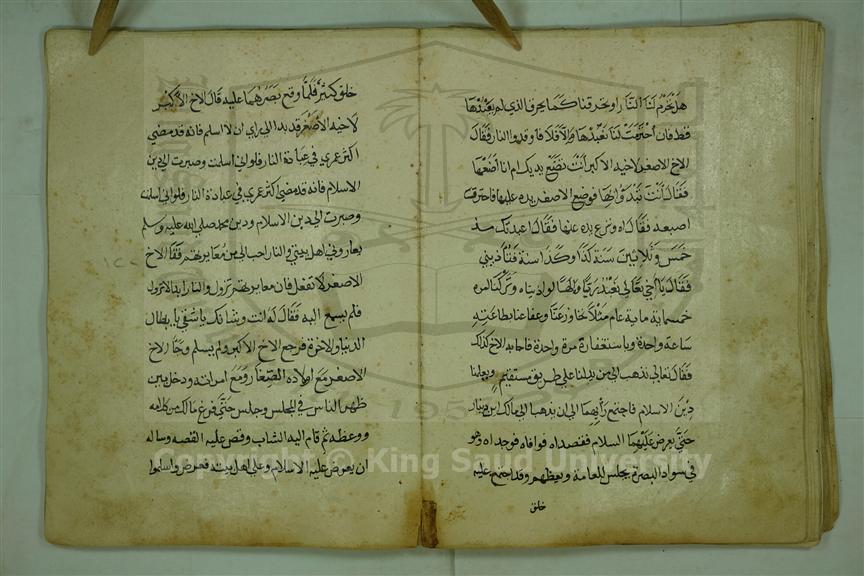 هل تحرم لنا النار او تحرقنا كما يحرق الذي لم يعبدها
قط فان احترمت لنا نعبدها والا فلا فاوقدوا النار فقال
الاخ الاصغر لاخيه الاكبر انت تضع يديك ام انا اضعها
فقال انت تبدو بها فوضع الاصغر يده عليها فاحترقت
اصبعه فقال اه ونزع يده عنها فقال اعبدتك منذ
خمس وثلاثين سنة كذا وكذا سنة فتاذيني
فقال يا اخي تعالى نعبد ربا والها لواذنبناه وتركنا امره
خمسماية عام مثلا تجاوز عنا وعفا عنا بطاعته
ساعة واحدة وباستغفاره مرة واحدة فاجابه الاخ كذلك
فقال تعالى نذهب الى من يدلنا على طريق مستقيم ويعلمنا
دين الاسلام فاجتمع رايهما الى ان يذهبا الى مالك بن دينار
حتى يعرض عليهما السلام فقصداه فوافاه فوجداه وهو
في سواد البصرة يجلس للعامة ويعظهم وقد اجتمع عليه
خلق
خلق كثير فلما وقع بصرهما عليه قال الاخ الاكبر
لاخيه الاصغر قد بدا لي راي ان لا اسلم فانه قد مضي
اكثر عمري في عبادة النار فلو اني اسلمت وصبرت الى دين
الاسلام فانه قد مضي اكثر عمري في عبادة النار فلو اني اسلمت
وصبرت الى دين الاسلام ودين محمد صلى الله عليه وسلم
يعاروني اهل بيتي والنار احب الي من معايرتهم فقال الاخ
الاصغر لا تفعل فان معايرتهم تزول والنار ابدا لا تزول
فلم يسمع اليه فقال له انت وشانك يا شقي يا بطال
الدنيا والاخرة فرجع الاخ الاكبر ولم يسلم وجا الاخ
الاصغر مع اولاده الصغار ومع امراته ودخل بين
ظهر الناس في المجلس وجلس حتى فرغ مالك من كلامه
ووعظه ثم قام اليه الشاب وقص عليه القصه وساله
ان يعرض عليه الاسلام وعلى اهل بيته فعرض واسلموا
Copyright © King Saud University
195